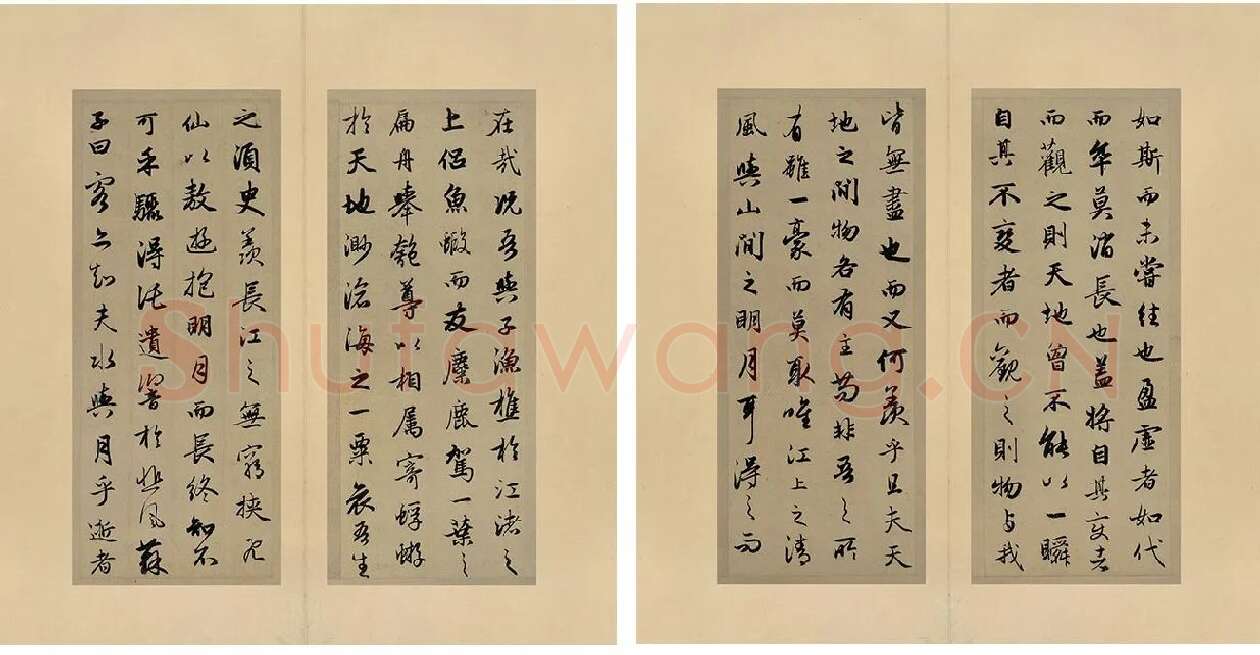 在哉況吾與子漁樵於江渚之
上侶魚蝦而友麋鹿駕一葉之
扁舟舉匏尊以相屬寄蜉蝣
於天地渺滄海之一粟哀吾生
之須臾羨長江之無窮挾飛
仙以敖遊抱明月而長終知不
可乎驟得託遺響於悲風蘇
子曰客亦知夫水與月乎逝者
如斯而未嘗往也盈虛者如代
而卒莫消長也蓋將自其變者
而觀之則天地曾不能以一瞬
自其不變者而觀之則物与我
皆無盡也而又何羨乎且夫天
地之間物各有主苟非吾之所
有雖一豪而莫取唯江上之清
風與山間之明月耳得之而
Shufawang.CN